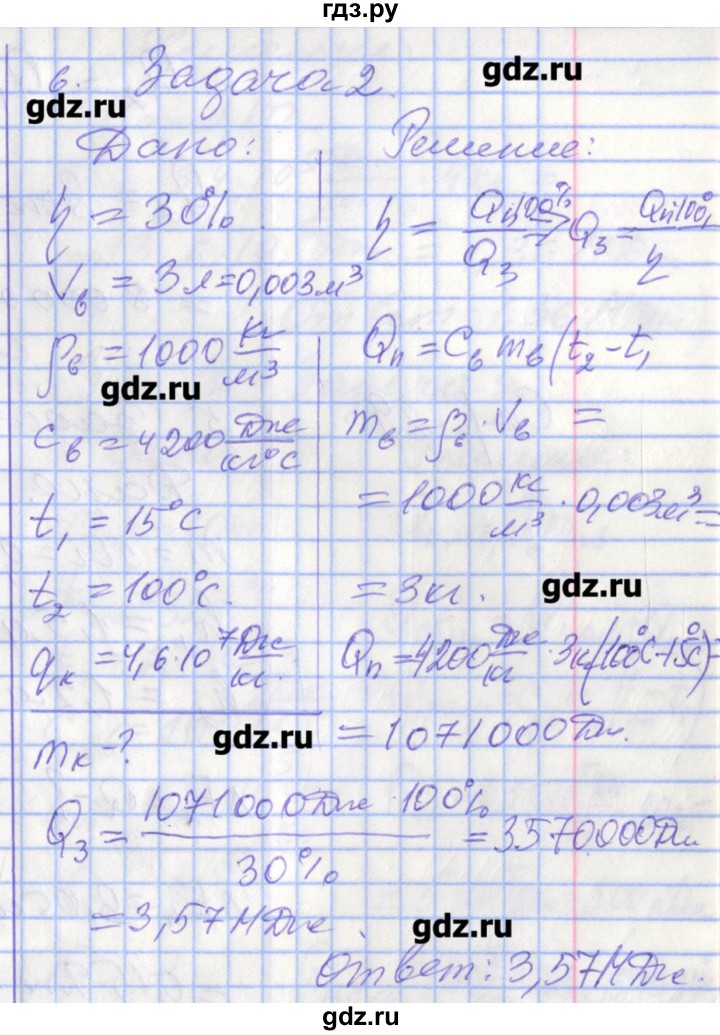 гдз.ру
6. Задача 2.
gdz.ru
gdz.ru
Дано:
η = 30%.
Vв = 3л = 0,003м³
ρв = 1000 кг/м³
gdz.ru
cв = 4200 Дж/кг°С
t₁ = 15°С
t₂ = 100°С.
qк = 4,6·10⁷ Дж/кг.
mк - ?
Решение:
η = Qп100%/Qз ⇒ Qз = Qп100%/η
Qп = Cв mв (t₂ - t₁
mв = ρв · Vв =
= 1000 кг/м³ · 0,003м³ =
= 3кг.
gdz.ru
Qп = 4200 Дж/кг · 3к(100°С-15°С) =
gdz.ru
= 1071000Дж.
Qз = 1071000Дж · 100%/30% = 3570000Дж
= 3,57МДж.
gdz.ru
Ответ: 3,57МДж.
gdz.ru